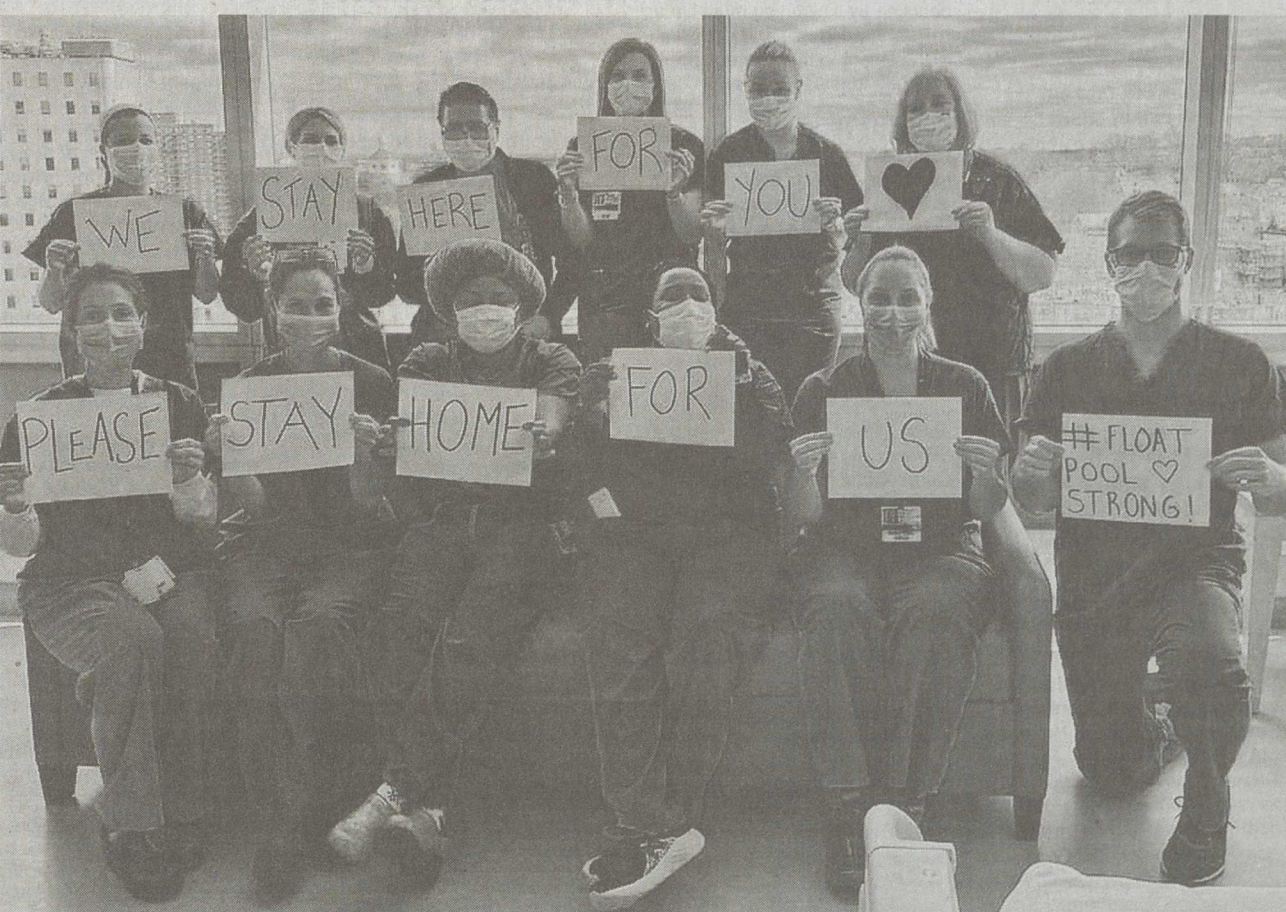 WE STAY HERE FOR YOU ♥
PLEASE STAY HOME FOR US
# FLOAT
POOL ♡
STRONG!